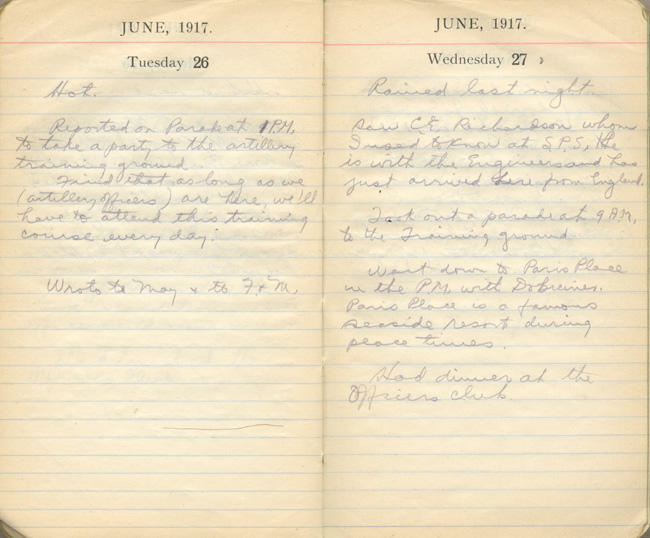 JUNE, 1917.
Tuesday 26
Hot.
Reported on Parade at 1 P.M.
to take a part, to the artillery
training ground.
Find that as long as we
(artillery officers) are here, we'll
have to attend this training
course every day.
Wrote to May & to F. & M.
JUNE, 1917.
Wednesday 27
Rained last night.
Saw C.E. Richardson whom
I used to know at S.P.S. He
is with the Engineers and has
just arrived here from England.
Took out a parade at 9 A.M.
to the Training ground
Went down to Paris Place
in the P.M. with
Paris Place is a famous
seaside resort during
peace times.
Had dinner at the
Officers club.